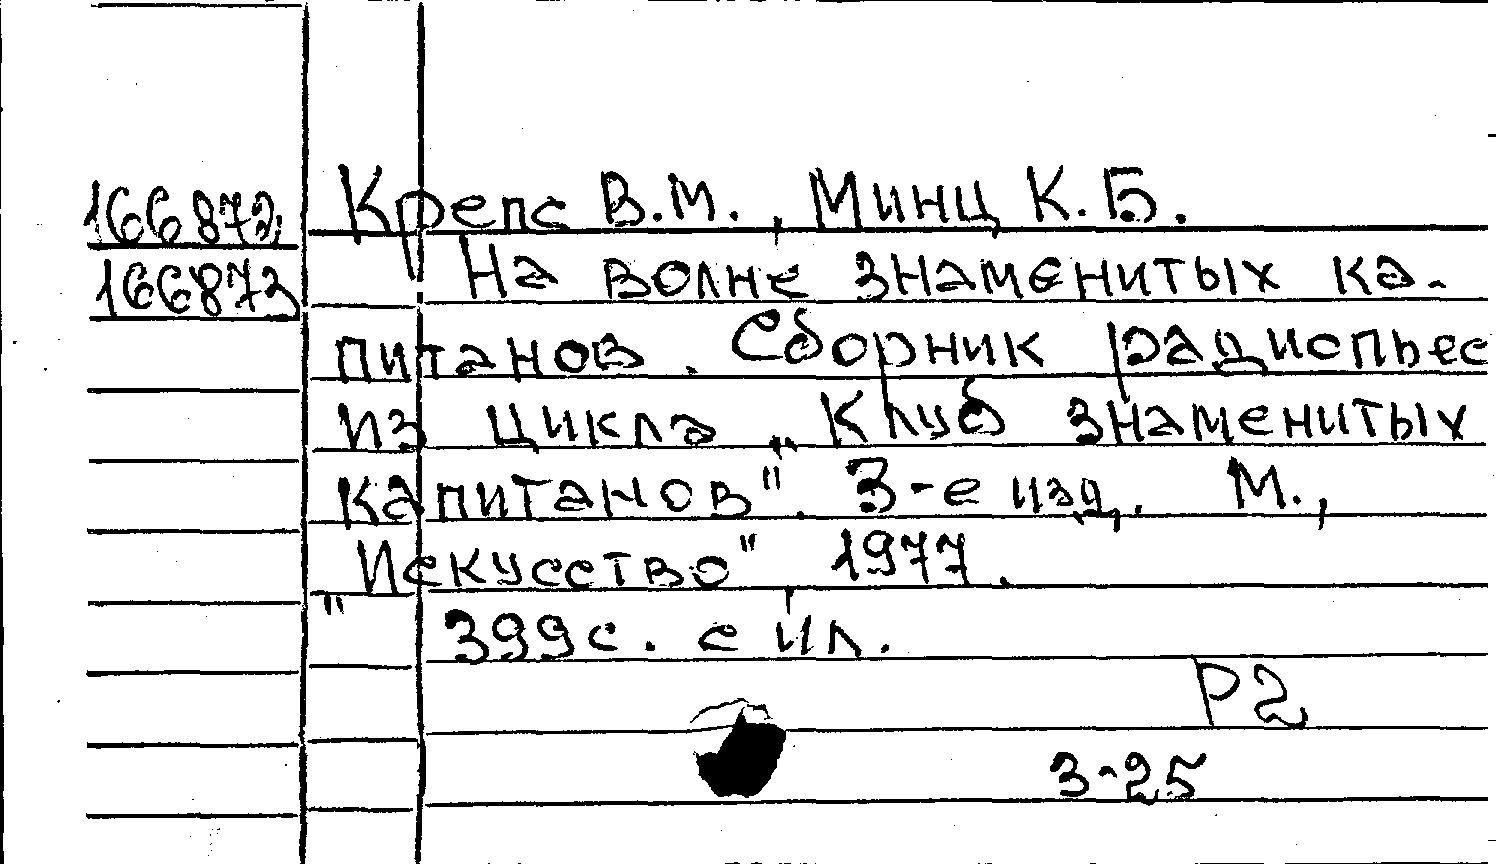 166872 Крепс В.М., Минц К.Б.
166873 На волне знаменитых ка-
питанов. Сборник радиопьес
из цикла "Клуб знаменитых
капитанов". 3-е изд. М.,
"Искусство", 1977.
399с. с ил.
Р2
3-25